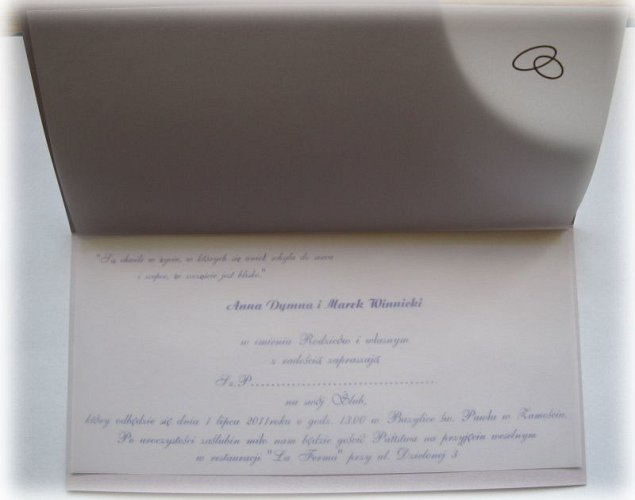 "Są chwile w życiu, w których się wiek schyla do ucha
i szepce, że szczęście jest blisko."
Anna Dymna i Marek Winnicki
w imieniu Rodziców i własnym
z radością zapraszają
Sz.P......................................
na swój Ślub,
który odbędzie się dnia 1 lipca 2011roku o godz. 13.00 w Bazylice św. Pawła w Zamościu.
Po uroczystości zaślubin miło nam będzie gościć Państwa na przyjęciu weselnym
w restauracji "La Ferma" przy ul. Dzielonej 3